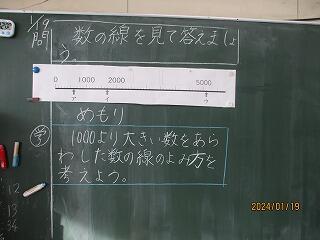 1/19
問 数の線を見て答えましょ
う。
0 1000 2000 5000
ア イ ウ
めもり
学 1000より大きい数をあら
わした数の線のよみ方を
考えよう。
12
13
34
2024/01/19